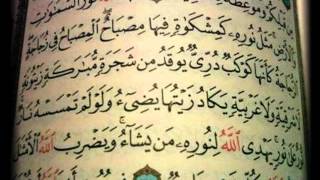 قبلكم وموعظة
نور السموت
والأرض مثل نوره كمشكوة فيها مصباح المصباح في زجاجة
الزجاجة كأنها كوكب دري يوقد من شجرة مبركة زيتونة
لا شرقية ولا غربية يكاد زيتها يضيء ولو لم تمسسه نار
نور على نور يهدي الله لنوره من يشاء ويضرب الله الأمثل